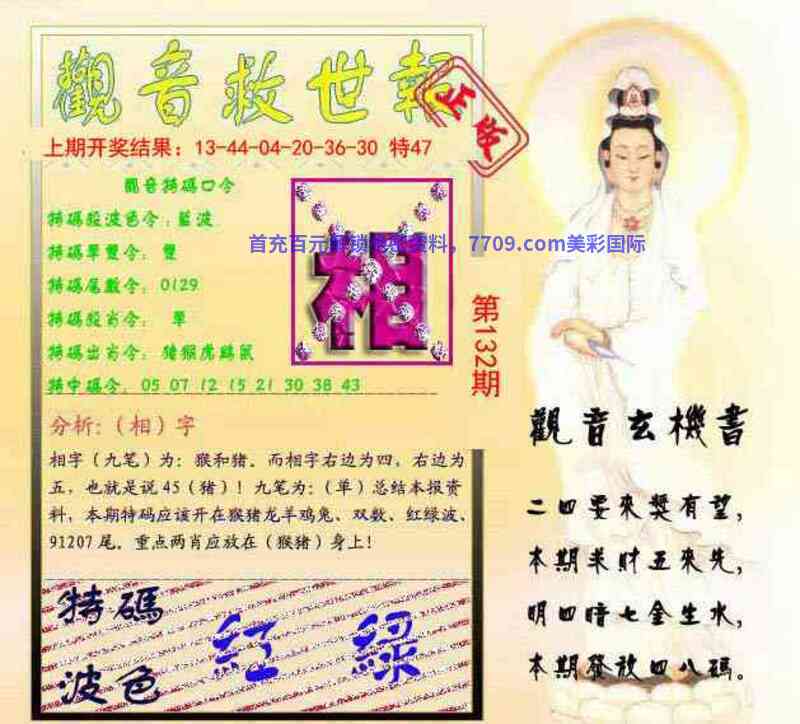 觀音救世報
正版
上期开奖结果：13-44-04-20-36-30 特47
觀音特碼口令
特碼段波色令：藍波
特碼單雙令： 雙
首充百元 资料，7709.com美彩国际
特碼尾數令： 0129
特碼段肖令： 單
特碼出肖令： 猪猴虎鷄鼠
特中碼令． 05 07 12 15 21 30 38 43
相
第132期
分析:（相）字
相字（九笔）为：猴和猪．而相字右边为四，右边为
五，也就是说45（猪）！九笔为：（单）总结本报资
料，本期特码应该开在猴猪龙羊鸡兔、双数、红绿波、
91207尾．重点两肖应放在（猴猪）身上！
特碼
波色
紅 綠
觀音玄機書
二四要來獎有望，
本期来财五來先，
明四暗七金生水，
本期發放四八碼。